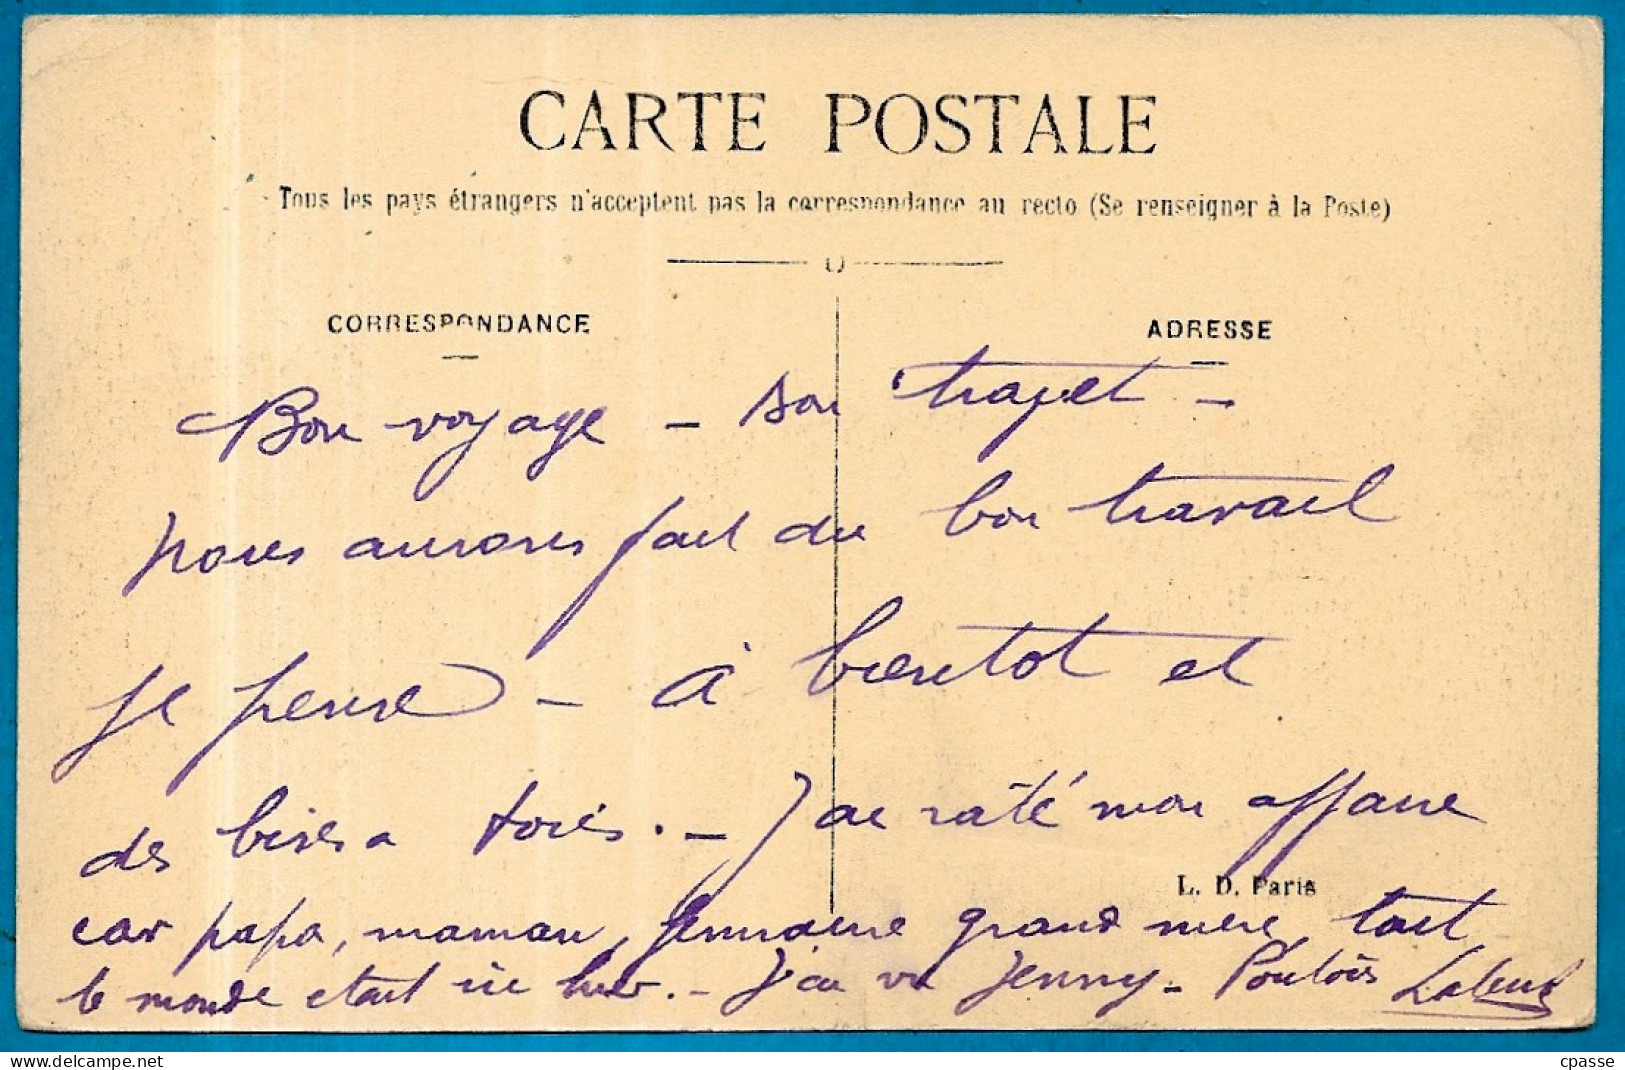 CARTE POSTALE
Tous les pays étrangers n'acceptent pas la correspondance au recto (Se renseigner à la Poste)
CORRESPONDANCE
ADRESSE
Bon voyage - bon trajet -
nous aurons fait du bon travail
je pense - à bientot et
des bises a tous. - J'ai raté mon affaire
L. D. Paris
car papa, maman, Germaine grand mere tout
le monde etait ici hier. - J'ai vu Jenny -
cpasse